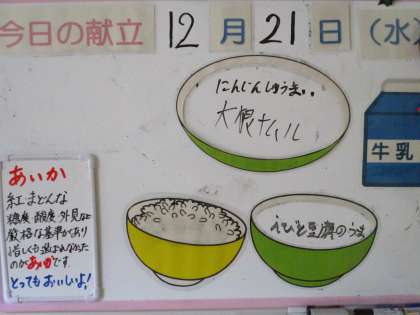 今日の献立 12月21日(水)
にんじんしゅうまい
大根ナムル
牛乳
えびと豆腐のうま
あいか
紅まどんな
糖度 酸度 外見など
厳格な基準があり
惜しくも選ばれなかった
のがあいかです
とってもおいしいよ!